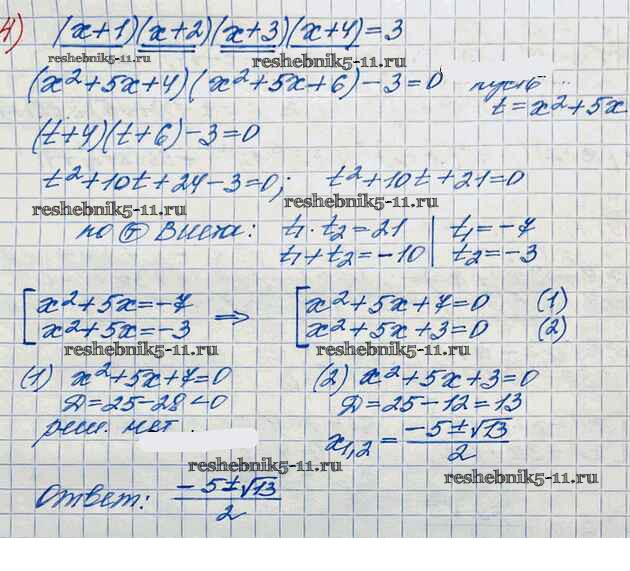 4) (x+1)(x+2)(x+3)(x+4)=3
reshebnik5-11.ru reshebnik5-11.ru
(x²+5x+4)(x²+5x+6)-3=0 пусть
t=x²+5x
(t+4)(t+6)-3=0
t²+10t+24-3=0; t²+10t+21=0
reshebnik5-11.ru reshebnik5-11.ru
по Ⓣ Виета: t₁·t₂=21 | t₁=-7
t₁+t₂=-10 | t₂=-3
[x²+5x=-7 ⇒ [x²+5x+7=0 (1)
x²+5x=-3 x²+5x+3=0 (2)
reshebnik5-11.ru reshebnik5-11.ru
(1) x²+5x+7=0 (2) x²+5x+3=0
Д=25-28<0 Д=25-12=13
реш. нет. x₁,₂=(-5±√13)/2
reshebnik5-11.ru reshebnik5-11.ru
Ответ: (-5±√13)/2